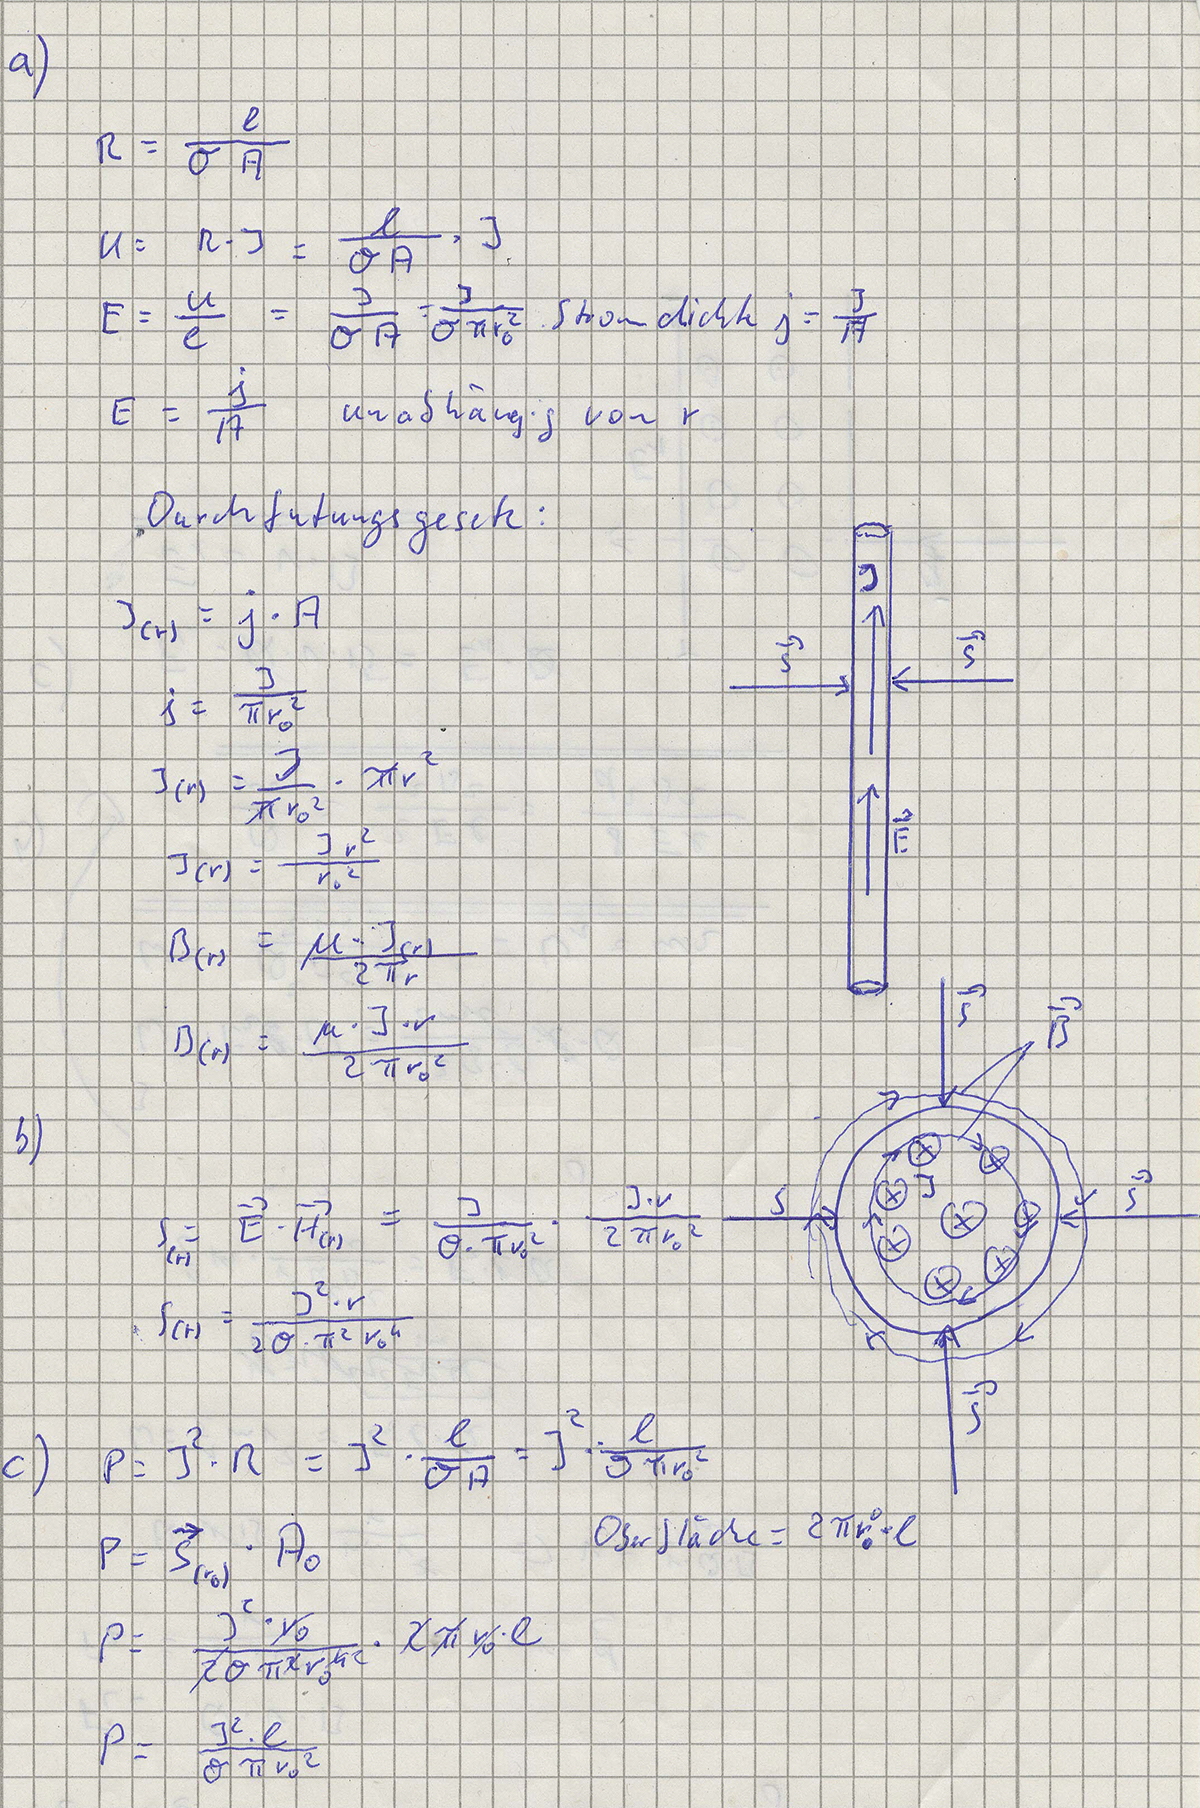 a)
R = l / (σ A)
U = R · I = l / (σ A) · I
E = U / l = I / (σ A) = I / (σ π r₀²) Stromdichte j = I / A
E = j / A unabhängig von r
Durchflutungsgesetz:
I(r) = j · A
I
S⃗ S⃗
j = I / (π r₀²)
I(r) = I / (π r₀²) · π r²
I(r) = I r² / r₀²
E⃗
B(r) = μ · I(r) / (2 π r)
B(r) = μ · I · r / (2 π r₀²)
S⃗ B⃗
b)
S(r) = E⃗ · H⃗(r) = I / (σ · π r₀²) · I · r / (2 π r₀²)
S I S⃗
S(r) = I² · r / (2 σ · π² r₀⁴)
S⃗
c) P = I² · R = I² · l / (σ A) = I² · l / (σ π r₀²)
P = S⃗(r₀) · A₀ Oberfläche = 2 π r₀ · l
P = I² · r₀ / (2 σ π² r₀⁴ ²) · 2 π r₀ · l
P = I² · l / (σ π r₀²)